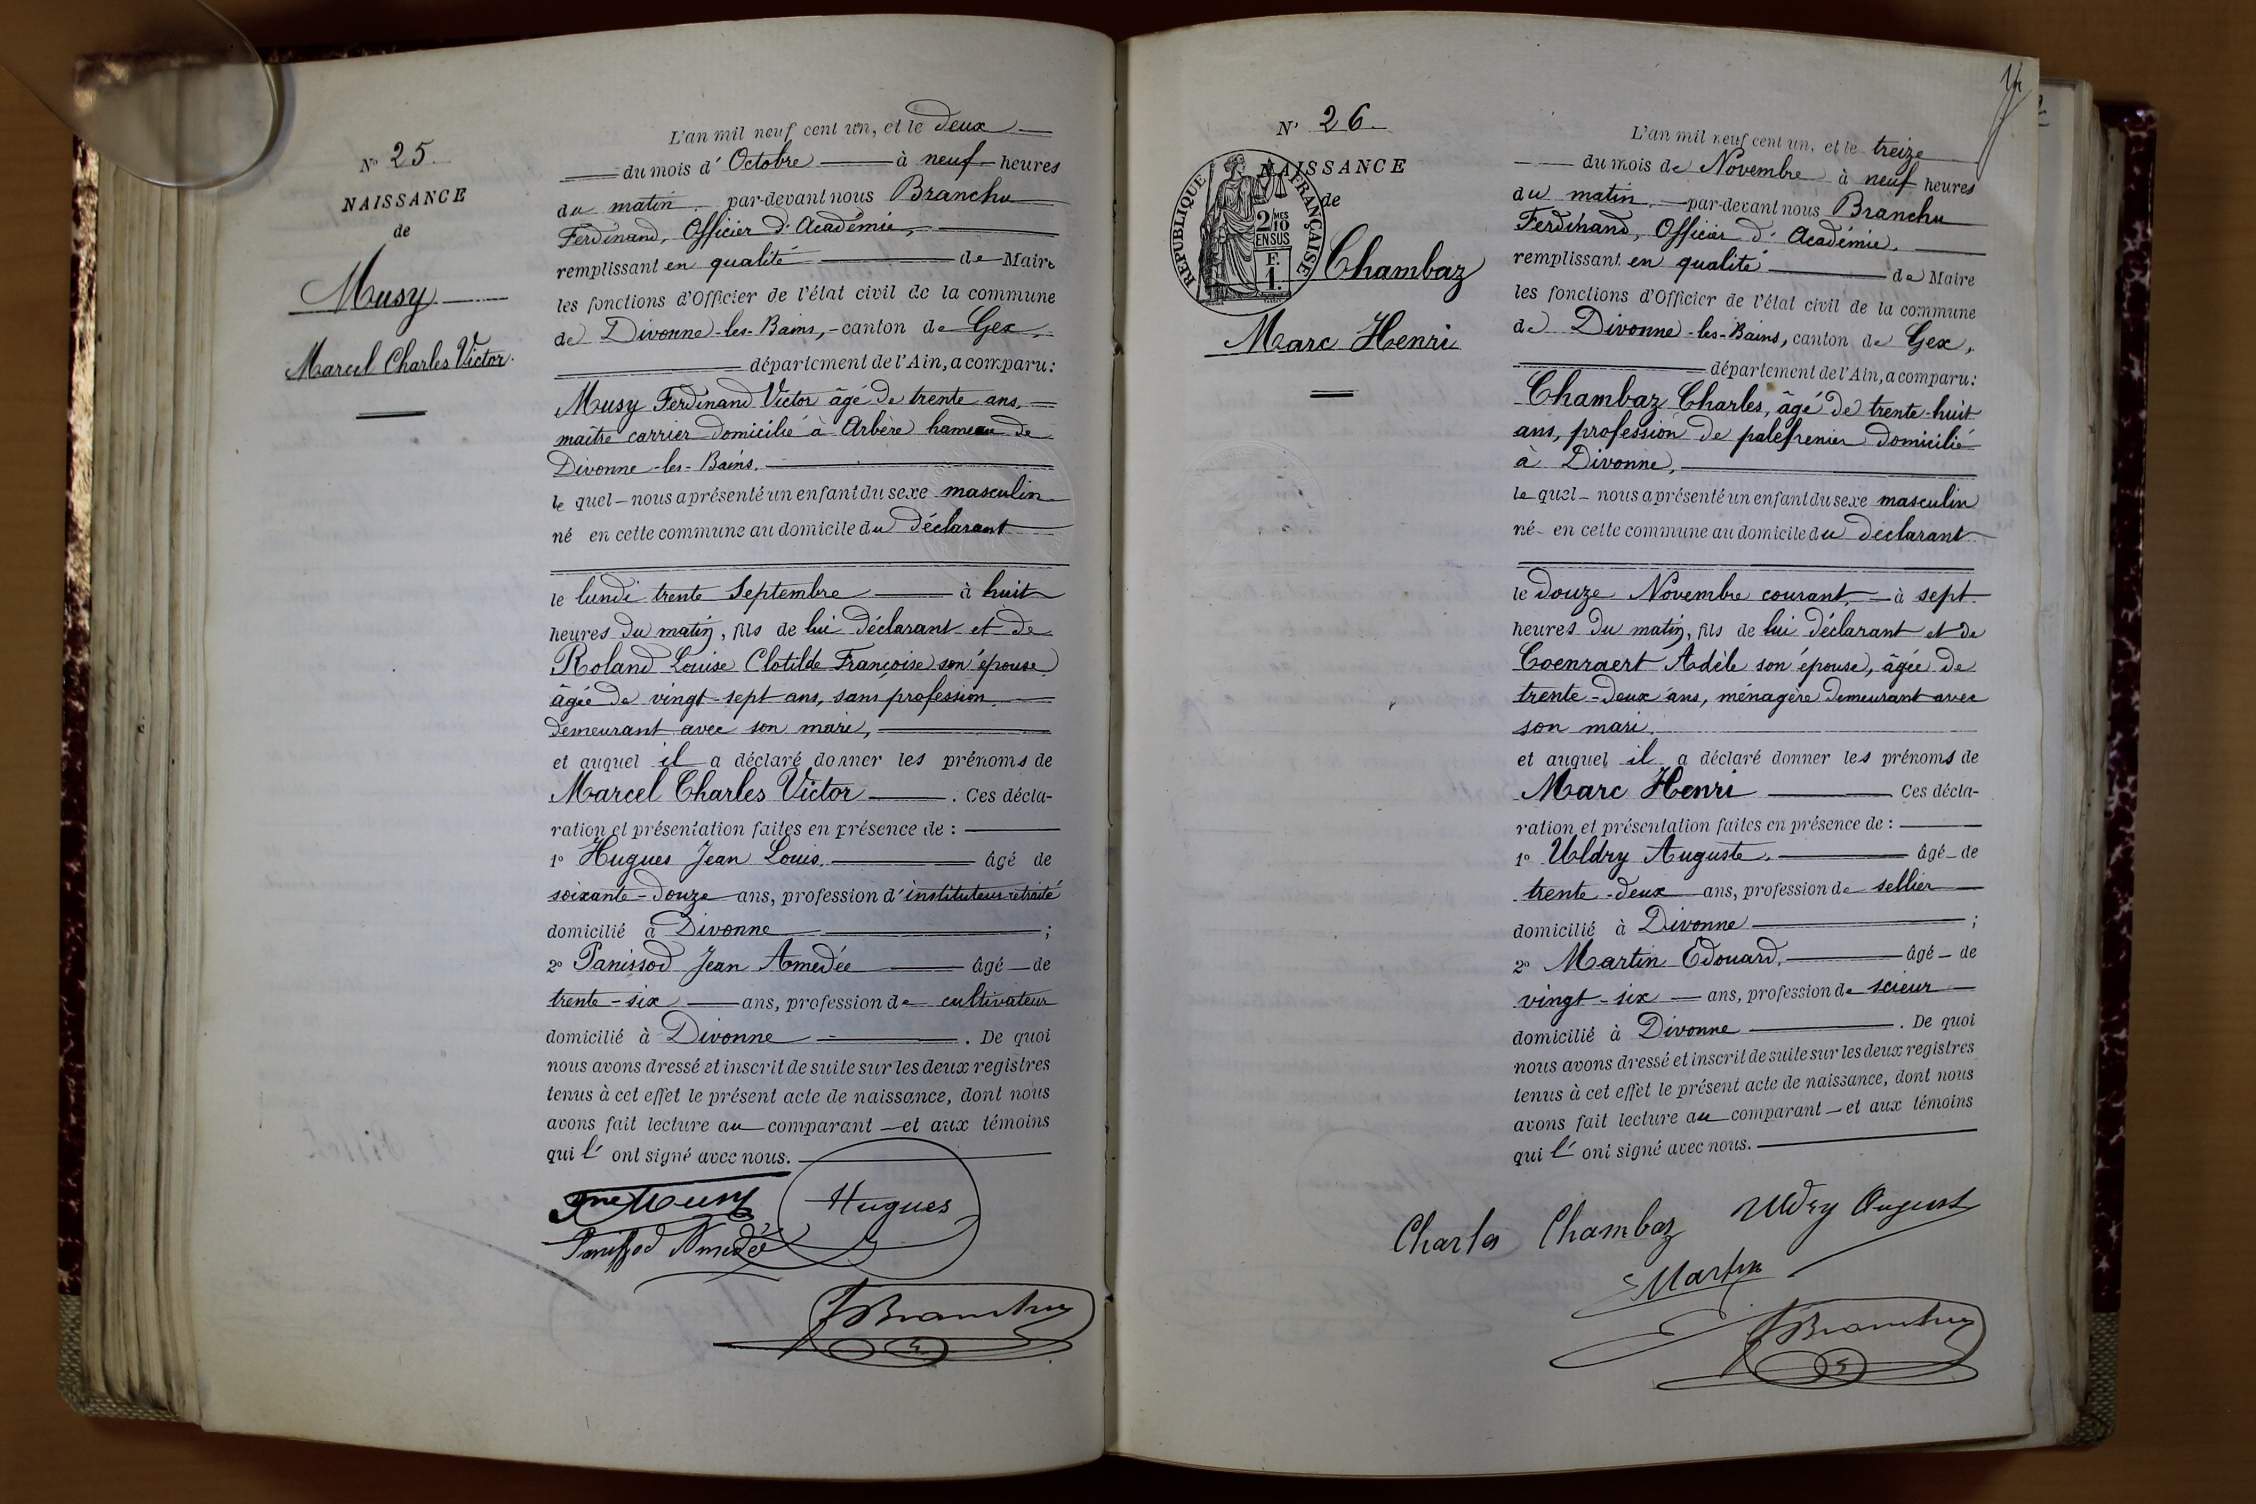 N° 25
NAISSANCE
de
Musy
Marcel Charles Victor.
L'an mil neuf cent un, et le deux
du mois d' Octobre à neuf heures
du matin par-devant nous Branchu
Ferdinand, Officier d'Académie,
remplissant en qualité de Maire
les fonctions d'Officier de l'état civil de la commune
de Divonne-les-Bains, canton de Gex,
département de l'Ain, a comparu:
Musy Ferdinand Victor âgé de trente ans,
maître carrier domicilié à Arbère hameau de
Divonne-les-Bains.
le quel nous a présenté un enfant du sexe masculin
né en cette commune au domicile du déclarant
le lundi trente Septembre à huit
heures du matin, fils de lui déclarant et de
Roland Louise Clotilde Françoise son épouse
âgée de vingt-sept ans, sans profession
demeurant avec son mari,
et auquel il a déclaré donner les prénoms de
Marcel Charles Victor . Ces décla-
ration et présentation faites en présence de :
1° Hugues Jean Louis, âgé de
soixante-douze ans, profession d'instituteur retraité
domicilié à Divonne ;
2° Panissod Jean Amédée âgé de
trente-six ans, profession de cultivateur
domicilié à Divonne . De quoi
nous avons dressé et inscrit de suite sur les deux registres
tenus à cet effet le présent acte de naissance, dont nous
avons fait lecture au comparant et aux témoins
qui l' ont signé avec nous.
Musy Hugues
Panissod Amédée
Branchu
N° 26
NAISSANCE
de
RÉPUBLIQUE FRANÇAISE
2/10MES
EN SUS
F.
1.
Chambaz
Marc Henri
L'an mil neuf cent un, et le treize
du mois de Novembre à neuf heures
du matin, par-devant nous Branchu
Ferdinand, Officier d'Académie,
remplissant en qualité de Maire
les fonctions d'Officier de l'état civil de la commune
de Divonne-les-Bains, canton de Gex,
département de l'Ain, a comparu:
Chambaz Charles, âgé de trente-huit
ans, profession de palefrenier domicilié
à Divonne,
le quel nous a présenté un enfant du sexe masculin
né en cette commune au domicile du déclarant
le douze Novembre courant, à sept
heures du matin, fils de lui déclarant et de
Coenraert Adèle son épouse, âgée de
trente-deux ans, ménagère demeurant avec
son mari.
et auquel il a déclaré donner les prénoms de
Marc Henri Ces décla-
ration et présentation faites en présence de :
1° Uldry Auguste, âgé de
trente-deux ans, profession de sellier
domicilié à Divonne ;
2° Martin Edouard, âgé de
vingt-six ans, profession de scieur
domicilié à Divonne . De quoi
nous avons dressé et inscrit de suite sur les deux registres
tenus à cet effet le présent acte de naissance, dont nous
avons fait lecture au comparant et aux témoins
qui l' ont signé avec nous.
Charles Chambaz Uldry August
E Martin
Branchu